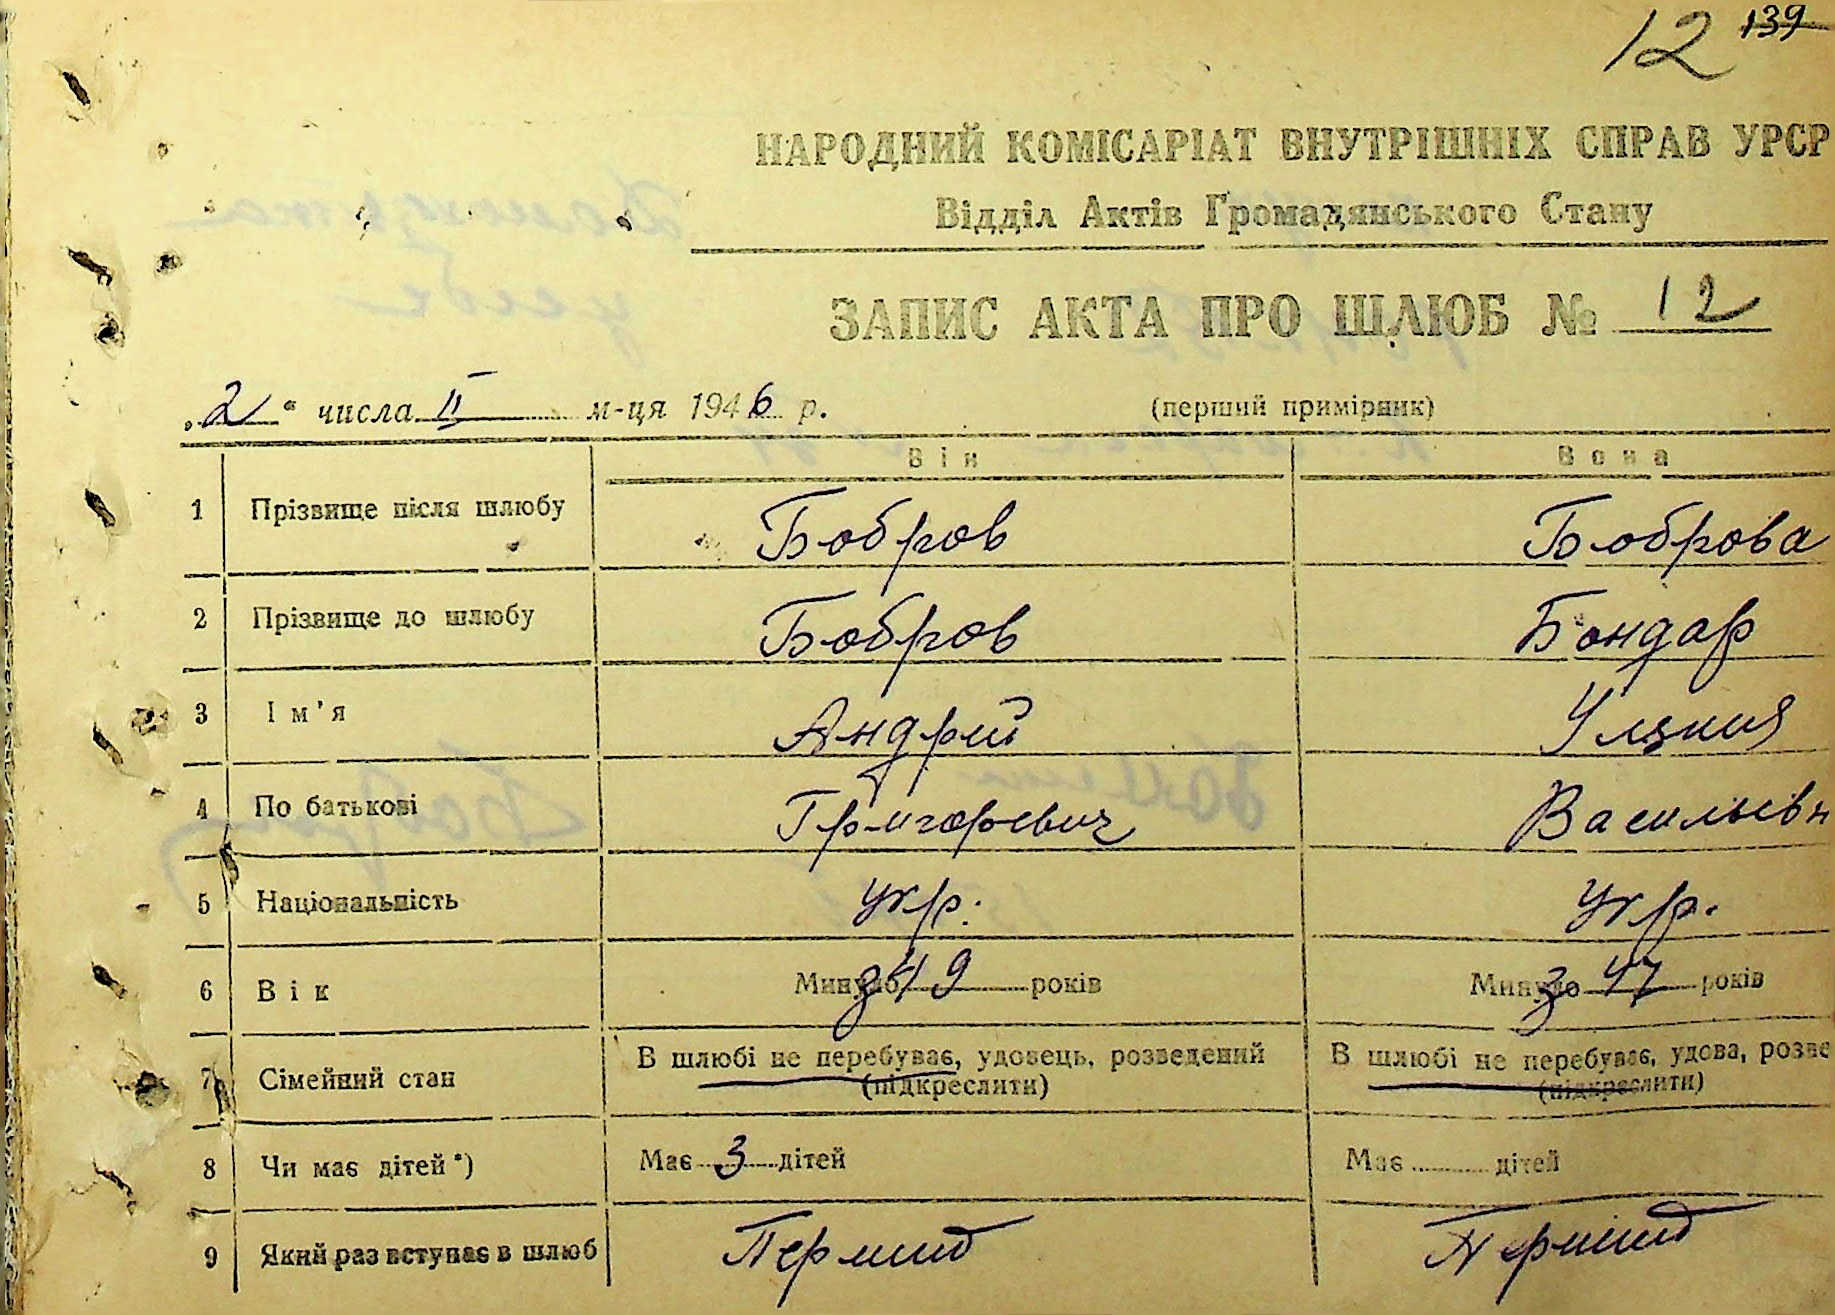 12 139
НАРОДНИЙ КОМІСАРІАТ ВНУТРІШНІХ СПРАВ УРСР
Відділ Актів Громадянського Стану
ЗАПИС АКТА ПРО ШЛЮБ № 12
„2“ числа II м-ця 1946 р. (перший примірник)
Він Вона
1 Прізвище після шлюбу Бобров Боброва
2 Прізвище до шлюбу Бобров Бондар
3 Ім'я Андрій
4 По батькові Григоревич Васильевн
5 Національність укр. укр.
6 Вік Минуло 49 років Минуло 47 років
7 Сімейний стан В шлюбі не перебуває, удовець, розведений В шлюбі не перебуває, удова, розве
(підкреслити) (підкреслити)
8 Чи має дітей*) Має 3 дітей Має дітей
9 Який раз вступає в шлюб Перший Перший